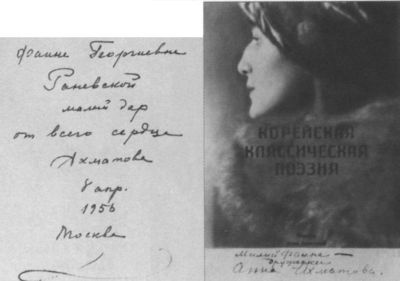 Фаине Георгиевне
Раневской
малый дар
от всего сердца
Ахматова
8 апр.
1956
Москва
КОРЕЙСКАЯ
КЛАССИЧЕСКАЯ
ПОЭЗИЯ
Милой Фаине —
Анна Ахматова.